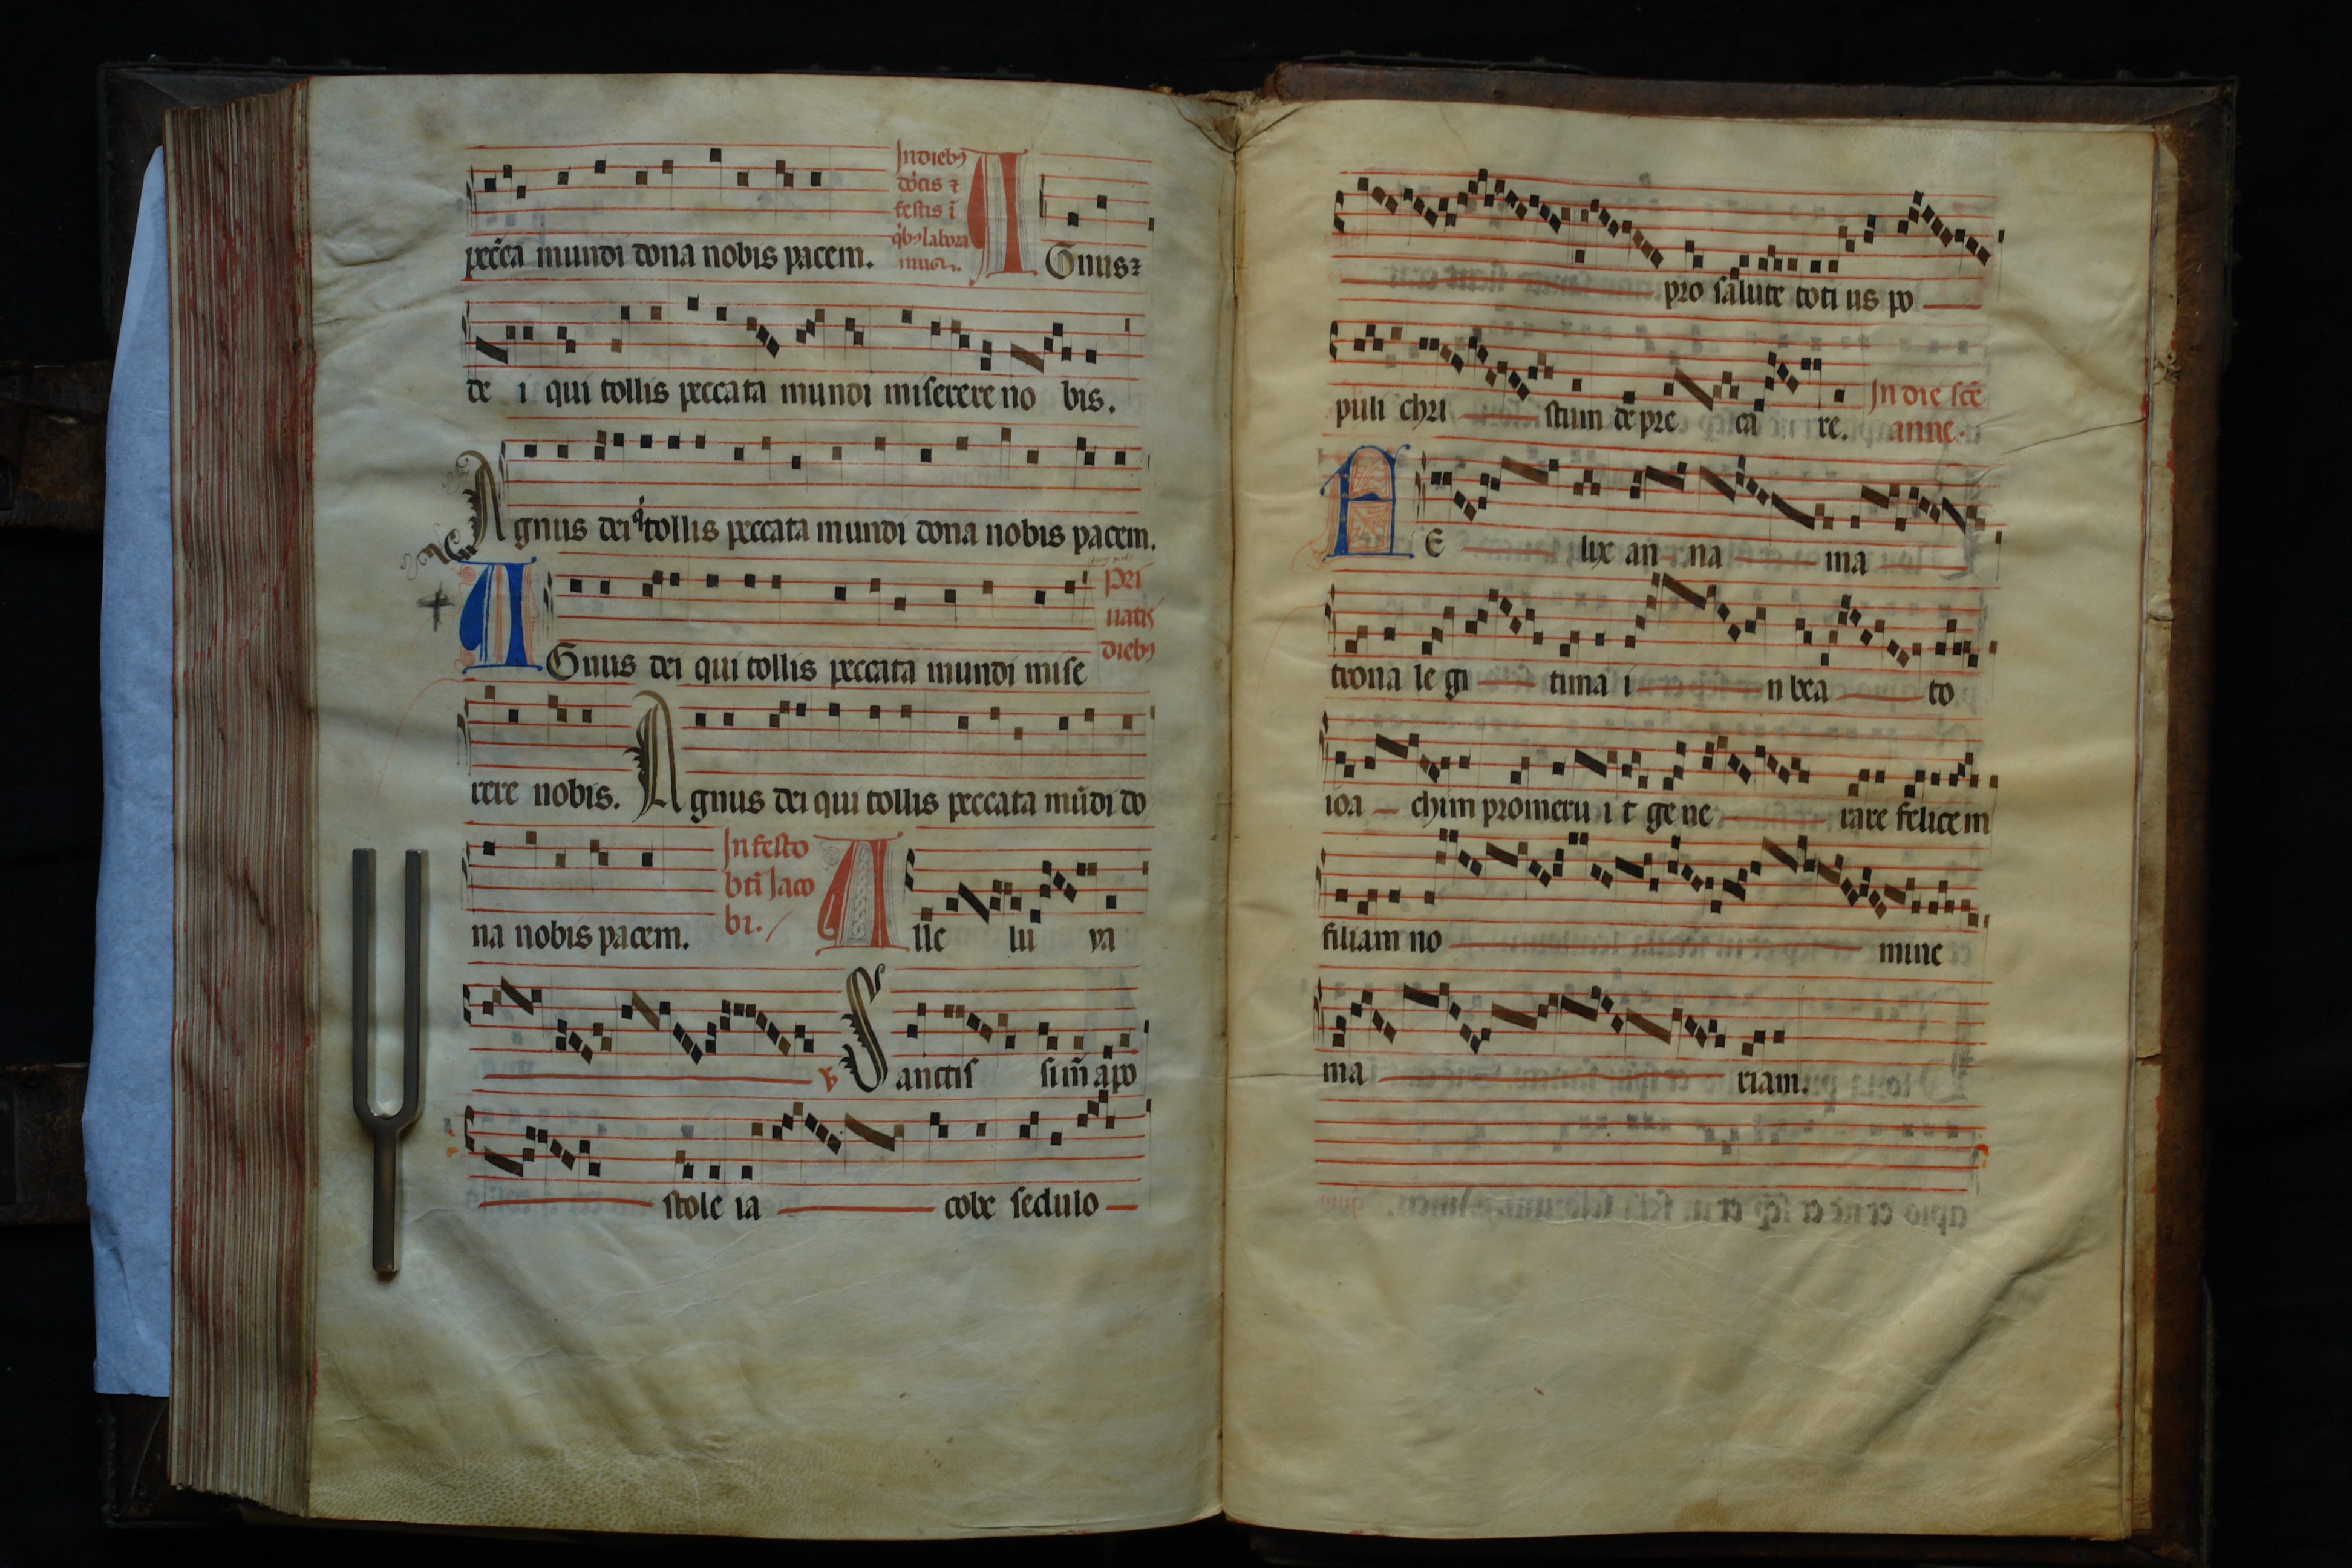 pec̄ca mundi dona nobis pacem.
In dieb9
dōcis ⁊
festis ī
qͥb9 labora
mus.
AGnus⁊
de i qui tollis peccata mundi miserere no bis.
Agnus dei qͥ tollis peccata mundi dona nobis pacem.
AGnus dei qui tollis peccata mundi mise
Pri
uatis
dieb9
rere nobis. Agnus dei qui tollis peccata mūdi do
na nobis pacem.
In festo
bti Jaco
bi.
Alle lu ya
℣ Sanctis sim̄ apo
stole ia cobe sedulo
pro salute toti us po
puli chri stum depre ca re.
In die scē
anne.
FE lix an na ma
trona le gi tima i n bea to
ioa chim promeru i t ge ne rare felicem
filiam no mine
ma riam.